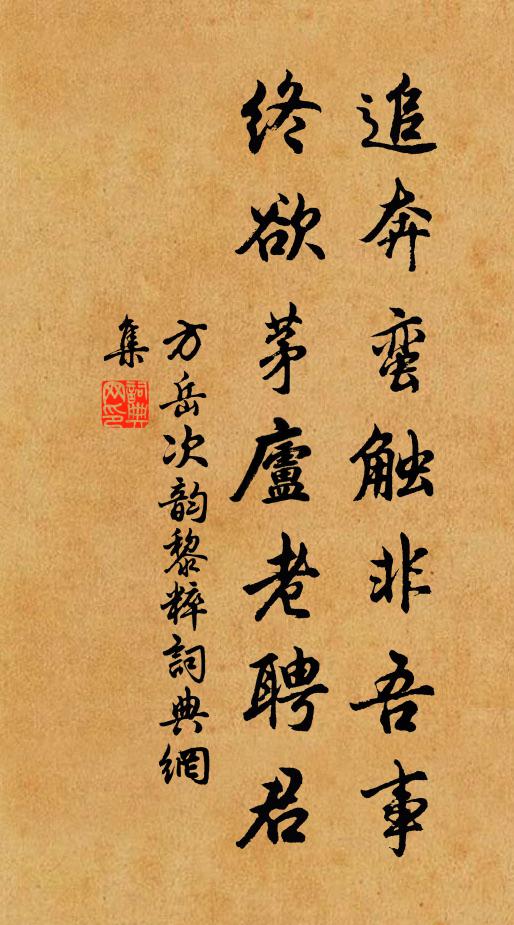 追奔蛮触非吾事
终欲茅廬老聘君
方岳次韵黎粹詞典網
集
詞典
网印